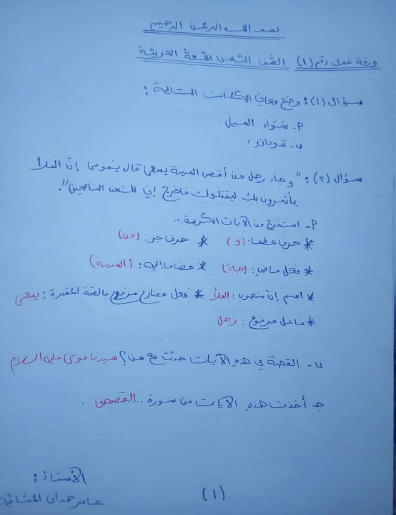 بسم الله الرحمن الرحيم
ورقة عمل رقم (١) الصف الثامن اللغة العربية
سؤال (١): وضح معاني الكلمات التالية:
٢- سواء السبيل:
ب- تذودان:
سؤال (٢): "وجاء رجل من أقصى المدينة يسعى قال يموسى إن الملأ
يأتمرون بك ليقتلوك فاخرج إني لك من الناصحين".
٢- استخرج من الآيات الكريمة..
* حرف عطف: (و) * حرف جر: (من)
* فعل ماضٍ: (جاء) * مضاف إليه: (المدينة)
* اسم إن منصوب: الملأ * فعل مضارع مرفوع بالضمة المقدرة: يسعى
* فاعل مرفوع: رجل
ب- القصة في هذه الآيات حدثت مع من؟ سيدنا موسى عليه السلام
جـ- أخذت هذه الآيات من سورة .. القصص .
الأستاذ:
عامر حمدان
(١)